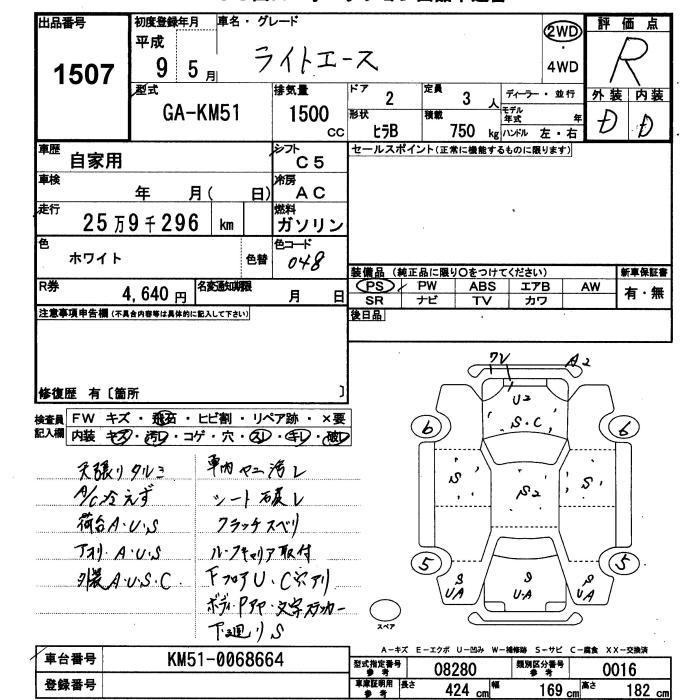 出品番号 初度登録年月 車名・グレード 2WD 評価点
1507 平成 9 5月 ライトエース 4WD R
型式 排気量 ドア 2 定員 3人 ディーラー・並行 外装 内装
GA-KM51 1500 CC 形状 ヒラB 積載 750 kg モデル年式 年 ハンドル 左・右 D D
車歴 自家用 シフト C5 セールスポイント(正常に機能するものに限ります)
車検 年 月( 日) 冷房 AC
走行 25万9千296 km 燃料 ガソリン
色 ホワイト 色替 色コード 048
装備品(純正品に限り○をつけてください) 新車保証書
R券 4,640円 名変通知期限 月 日 PS PW ABS エアB AW 有・無
SR ナビ TV カワ
注意事項申告欄(不具合内容等は具体的に記入して下さい) 後日品
修復歴 有〔箇所 〕
検査員記入欄 FW キズ・飛石・ヒビ割・リペア跡・×要
内装 キズ・汚レ・コゲ・穴・スレ・キレ・破レ
天張リタルミ 車内ヤニ汚レ
A/C冷えず シート破レ
荷台A・U・S クラッチスベリ
下オリ A・U・S ルーフキャリア取付
外装A・U・S・C FフロアU・C穴アリ
ボディ・Pアヤ・文字ステッカー
下廻りS
ワレ A2
U2
S・C
6 6
S S2 S
5 5
S UA U・A S UA
スペア
A-キズ E-エクボ U-凹み W-補修跡 S-サビ C-腐食 XX-交換済
車台番号 KM51-0068664 型式指定番号 参考 08280 類別区分番号 参考 0016
登録番号 車庫証明用 参考 長さ 424 cm 幅 169 cm 高さ 182 cm